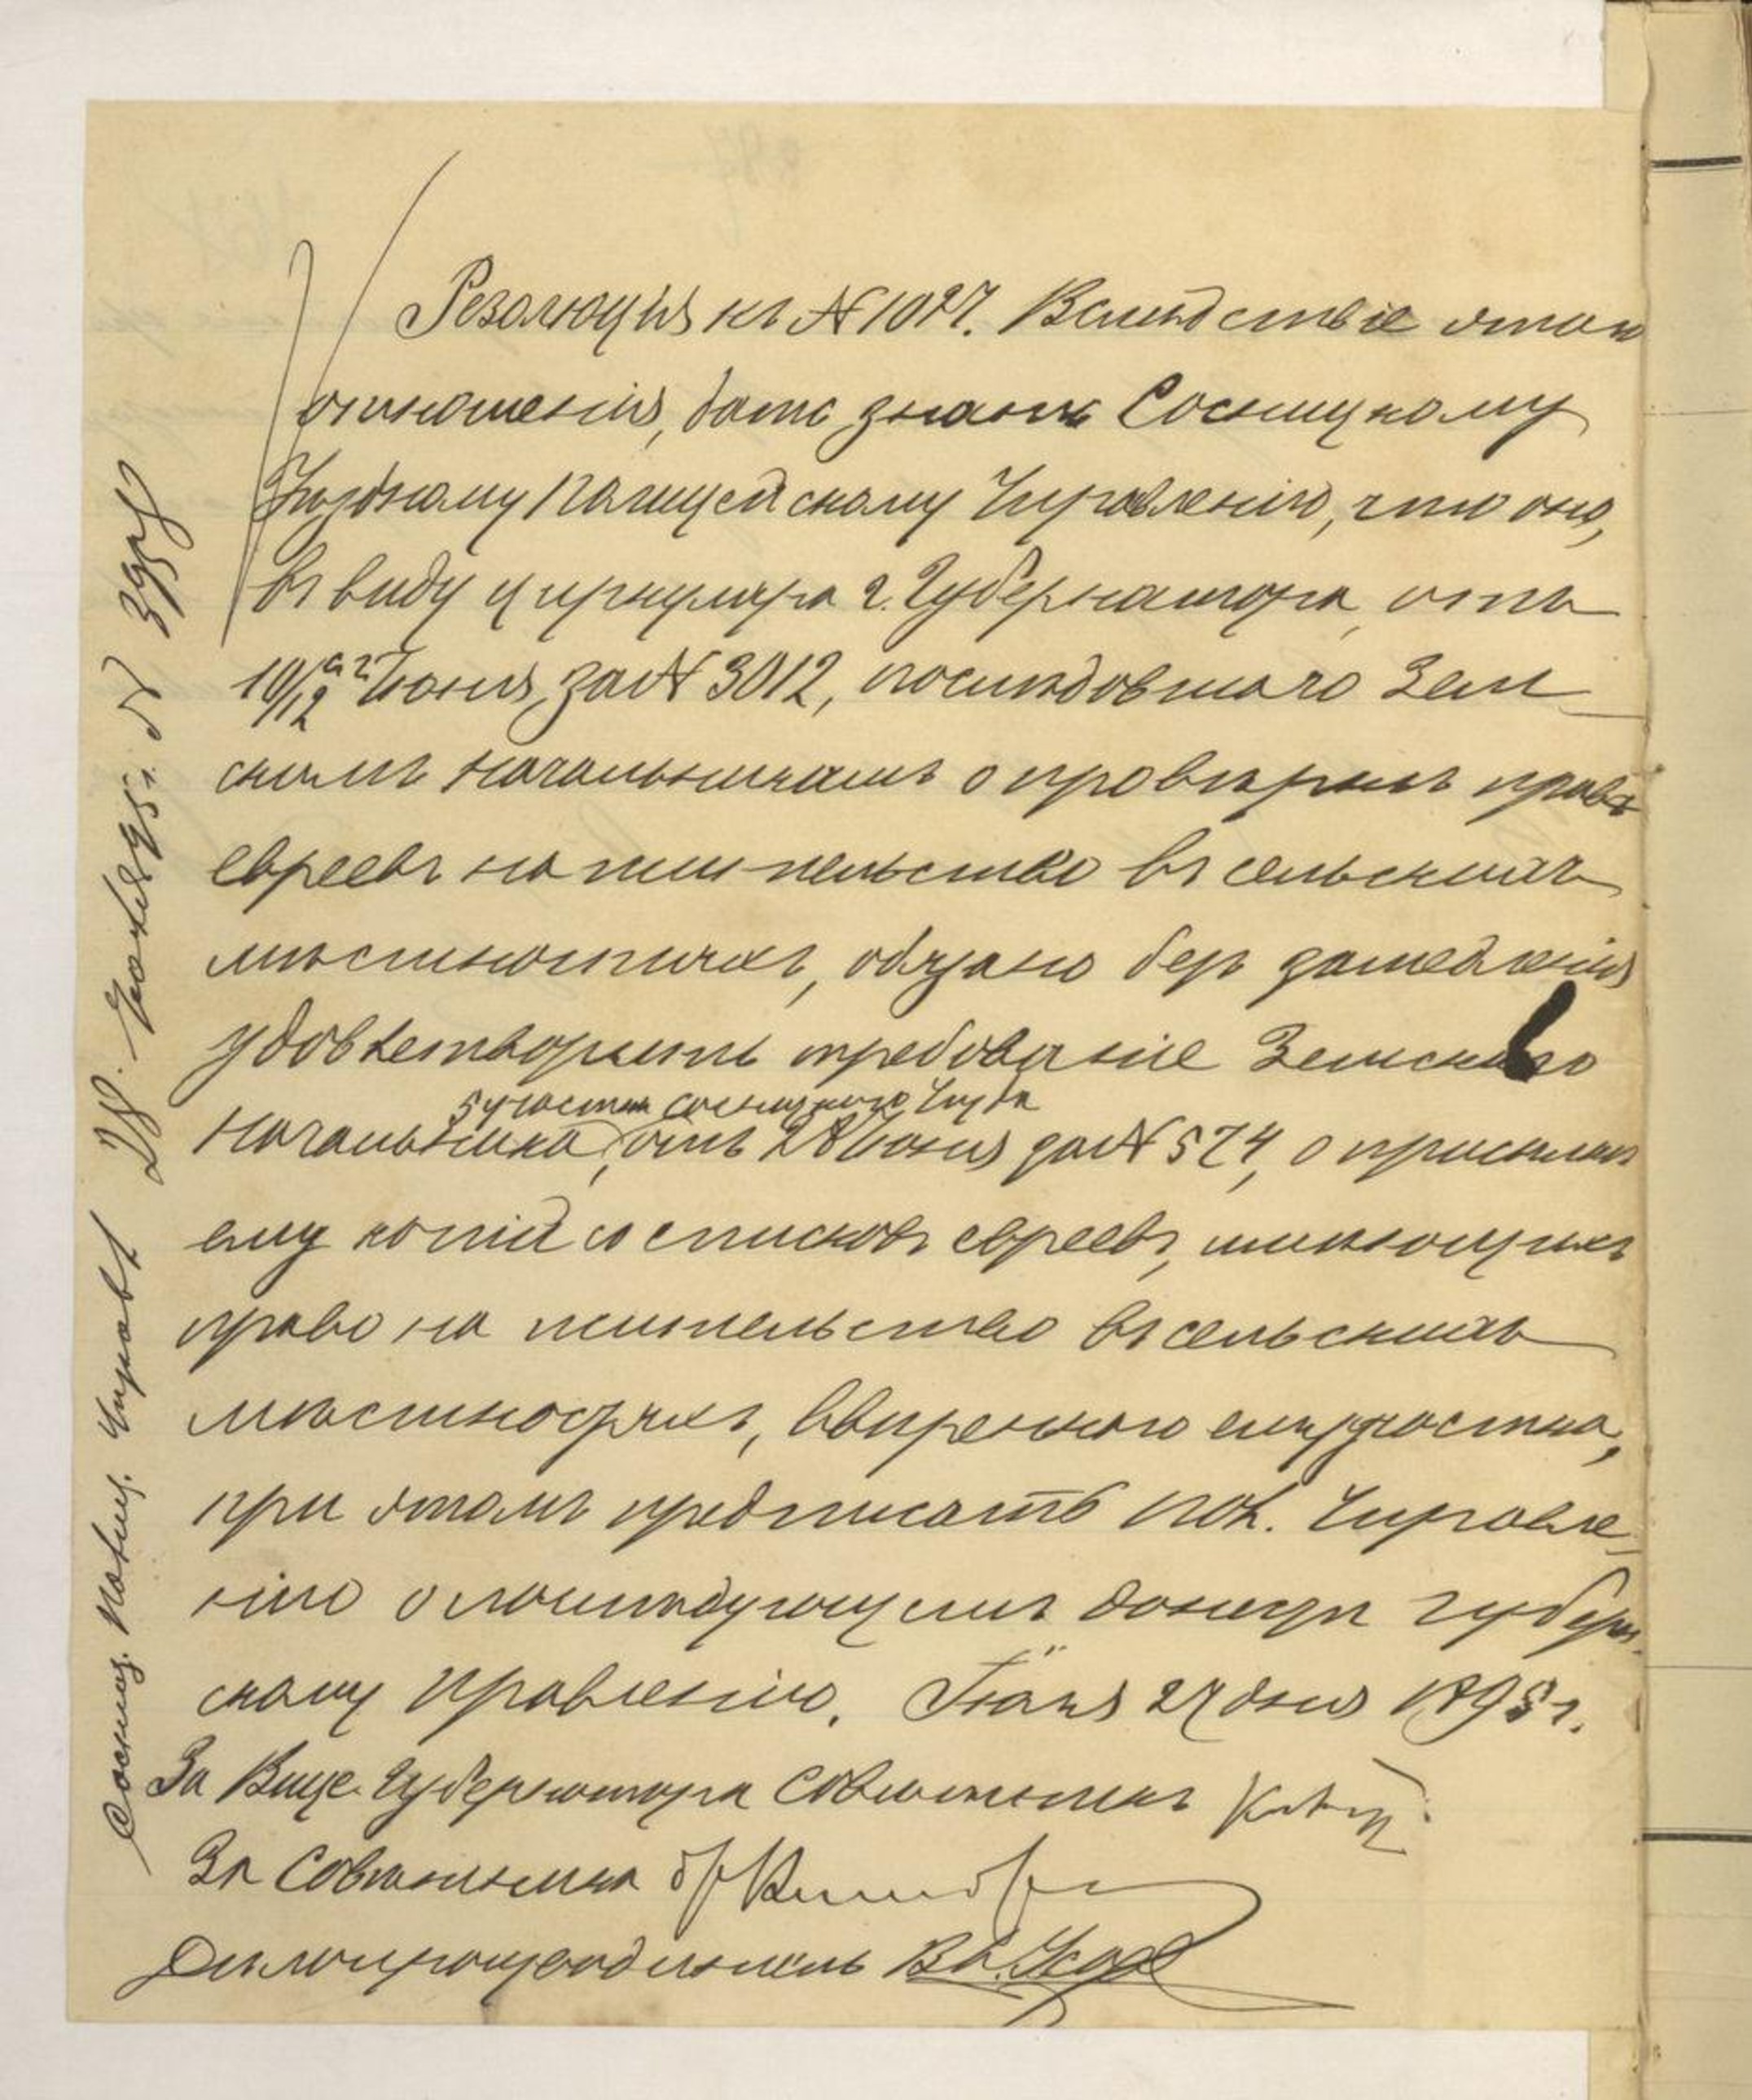 Резолюція къ № 1027. Вслѣдствіе этого
отношенія, дать знать Сосницкому
Уѣздному Полицейскому Управленію, что оно,
въ виду циркуляра г. Губернатора, отъ
10/12 с. г. Іюня, за № 3012, послѣдовшаго Зем-
скимъ Начальникамъ о провѣркѣ правъ
евреевъ на жительство въ сельскихъ
мѣстностяхъ, обязано безъ замедленія
удовлетворить требованіе Земскаго
5 участка Сосницкаго Уѣзда
Начальника, отъ 28 Іюня за № 574, о присылкѣ
ему копій со списковъ евреевъ, имѣющихъ
право на жительство въ сельскихъ
мѣстностяхъ, ввѣреннаго ему участка,
при этомъ предписать пол. Управле-
нію о послѣдующемъ донести Губерн.
скому Правленію. Іюля 27 дня 1895 г.
За Вице-Губернатора Совѣтникъ
За Совѣтника
Дѣлопроизводитель
Сосниц. Полиц. Управл. 28 Іюля 95 г. №